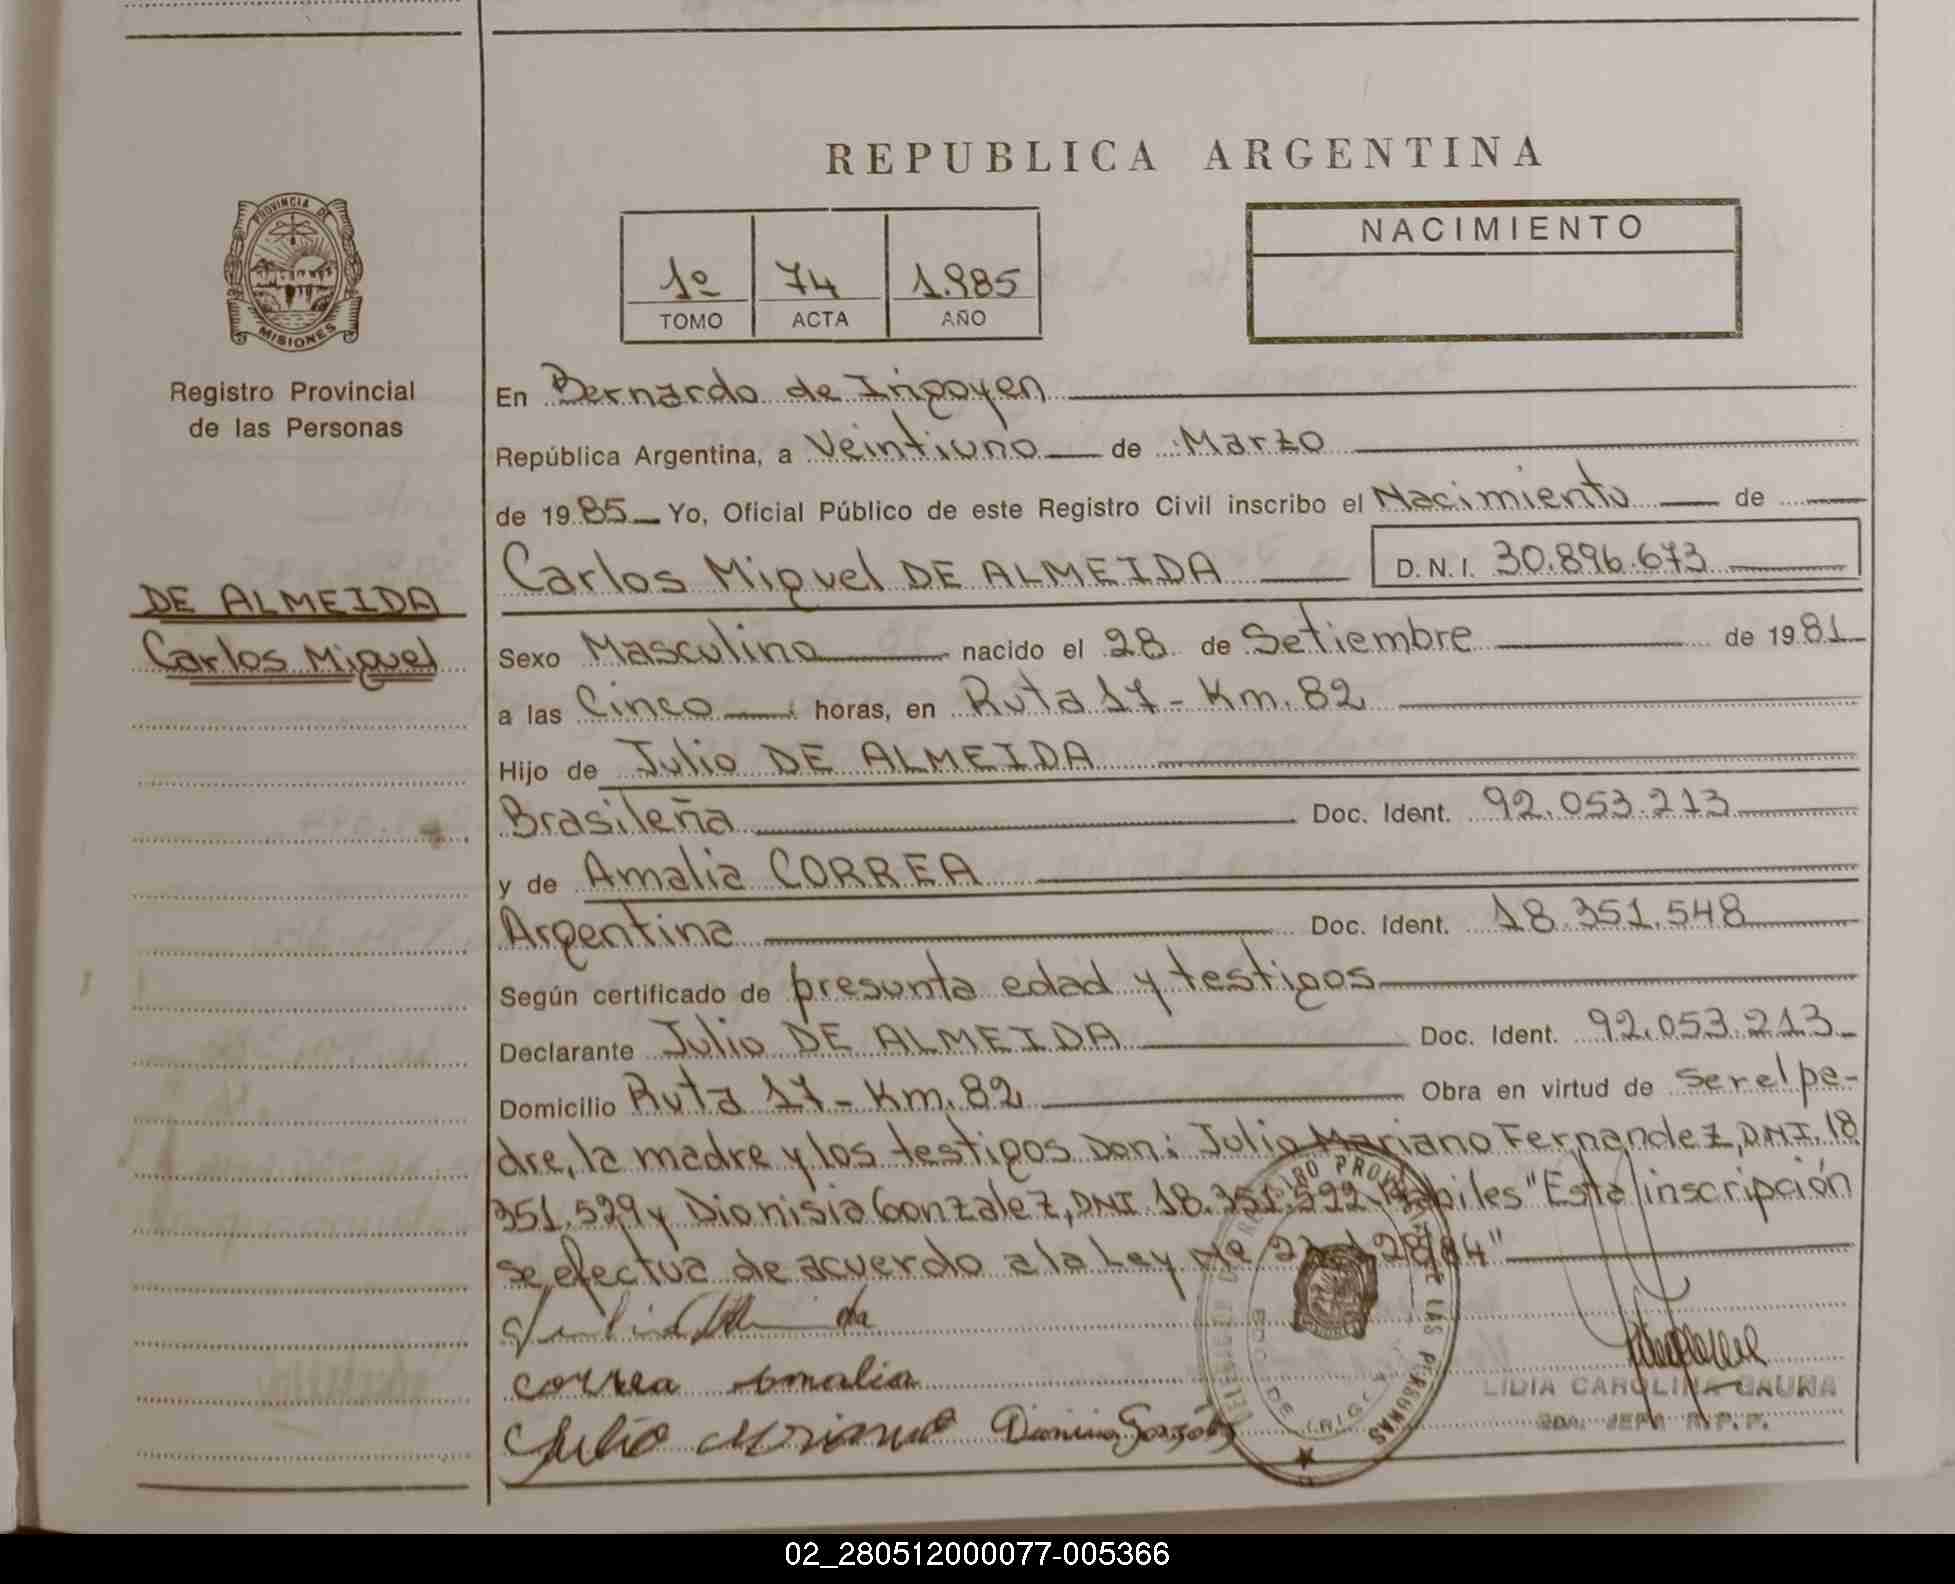 REPUBLICA ARGENTINA
PROVINCIA DE
MISIONES
Registro Provincial
de las Personas
DE ALMEIDA
Carlos Miguel
1º 74 1.985
TOMO ACTA AÑO
NACIMIENTO
En Bernardo de Irigoyen
República Argentina, a Veintiuno de Marzo
de 1985 Yo, Oficial Público de este Registro Civil inscribo el Nacimiento de
Carlos Miguel DE ALMEIDA D.N.I. 30.896.673
Sexo Masculino nacido el 28 de Setiembre de 1981
a las Cinco horas, en Ruta 17 - Km. 82
Hijo de Julio DE ALMEIDA
Brasileña Doc. Ident. 92.053.213
y de Amalia CORREA
Argentina Doc. Ident. 18.351.548
Según certificado de presunta edad y testigos
Declarante Julio DE ALMEIDA Doc. Ident. 92.053.213
Domicilio Ruta 17 - Km. 82 Obra en virtud de ser el pa-
dre, la madre y los testigos Don: Julio Mariano Fernandez, DNI. 18
351.529 y Dionisia Gonzalez, DNI 18.351.592 habiles "Esta inscripción
se efectua de acuerdo a la Ley Nº
correa amalia
Julio Mariano Dionisia Gonzalez
LIDIA CAROLINA GAUNA
2DA. JEFA R.P.P.
02_280512000077-005366